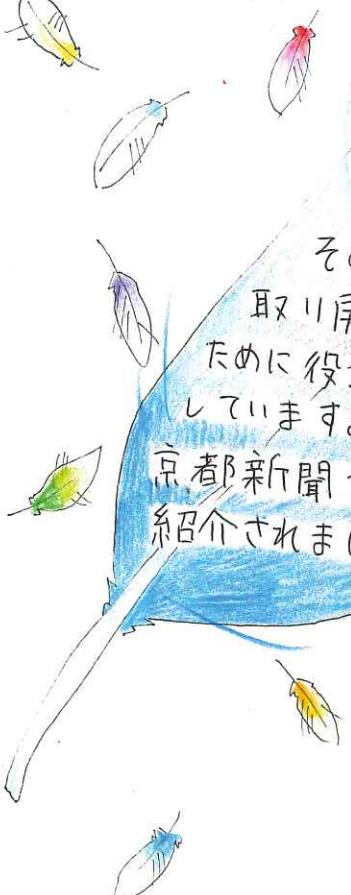 そ
取り戻
ために役
しています。
京都新聞
紹介されまし